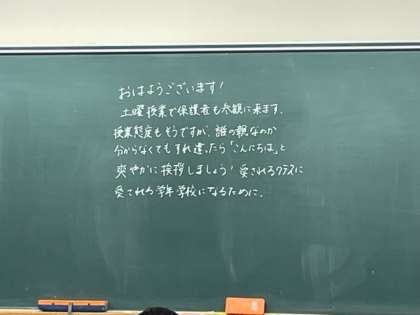 おはようございます!
土曜授業で保護者も参観に来ます.
授業態度もそうですが、誰の親なのか
分からなくてもすれ違ったら「こんにちは」と
爽やかに挨拶しましょう! 愛されるクラスに
愛される学年学校になるために.